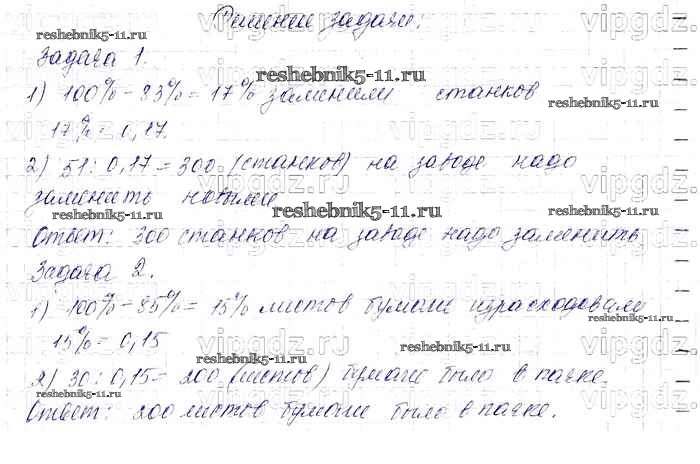 Решение задачи:
Задача 1.
1) 100% - 83% = 17% заменили станков
17% = 0,17.
2) 51 : 0,17 = 300 (станков) на заводе надо
заменить новыми
Ответ: 300 станков на заводе надо заменить
Задача 2.
1) 100% - 85% = 15% листов бумаги израсходовали
15% = 0,15
2) 30 : 0,15 = 200 (листов) бумаги было в пачке.
Ответ: 200 листов бумаги было в пачке.
reshebnik5-11.ru
reshebnik5-11.ru
reshebnik5-11.ru
reshebnik5-11.ru
reshebnik5-11.ru
reshebnik5-11.ru
reshebnik5-11.ru
reshebnik5-11.ru
reshebnik5-11.ru
reshebnik5-11.ru
vipgdz.ru
vipgdz.ru
vipgdz.ru